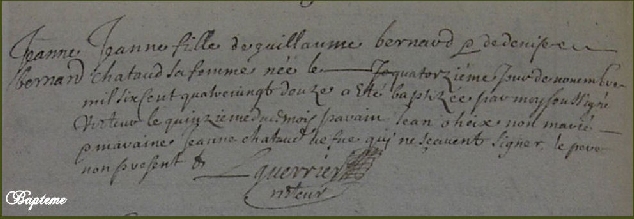 Jeanne Jeanne fille de guillaume bernard & de denise
bernard Chataud sa femme née le quatorzième jour de novembre
mil six cent quatre vingt douze a été baptizée par moy soussigné
victeur le quinzième du mois parain Jean choix non marié
maraine jeanne chataud de fue qui ne sçavent signer, le père
non present &
Lguerrier
victeur
Bapteme